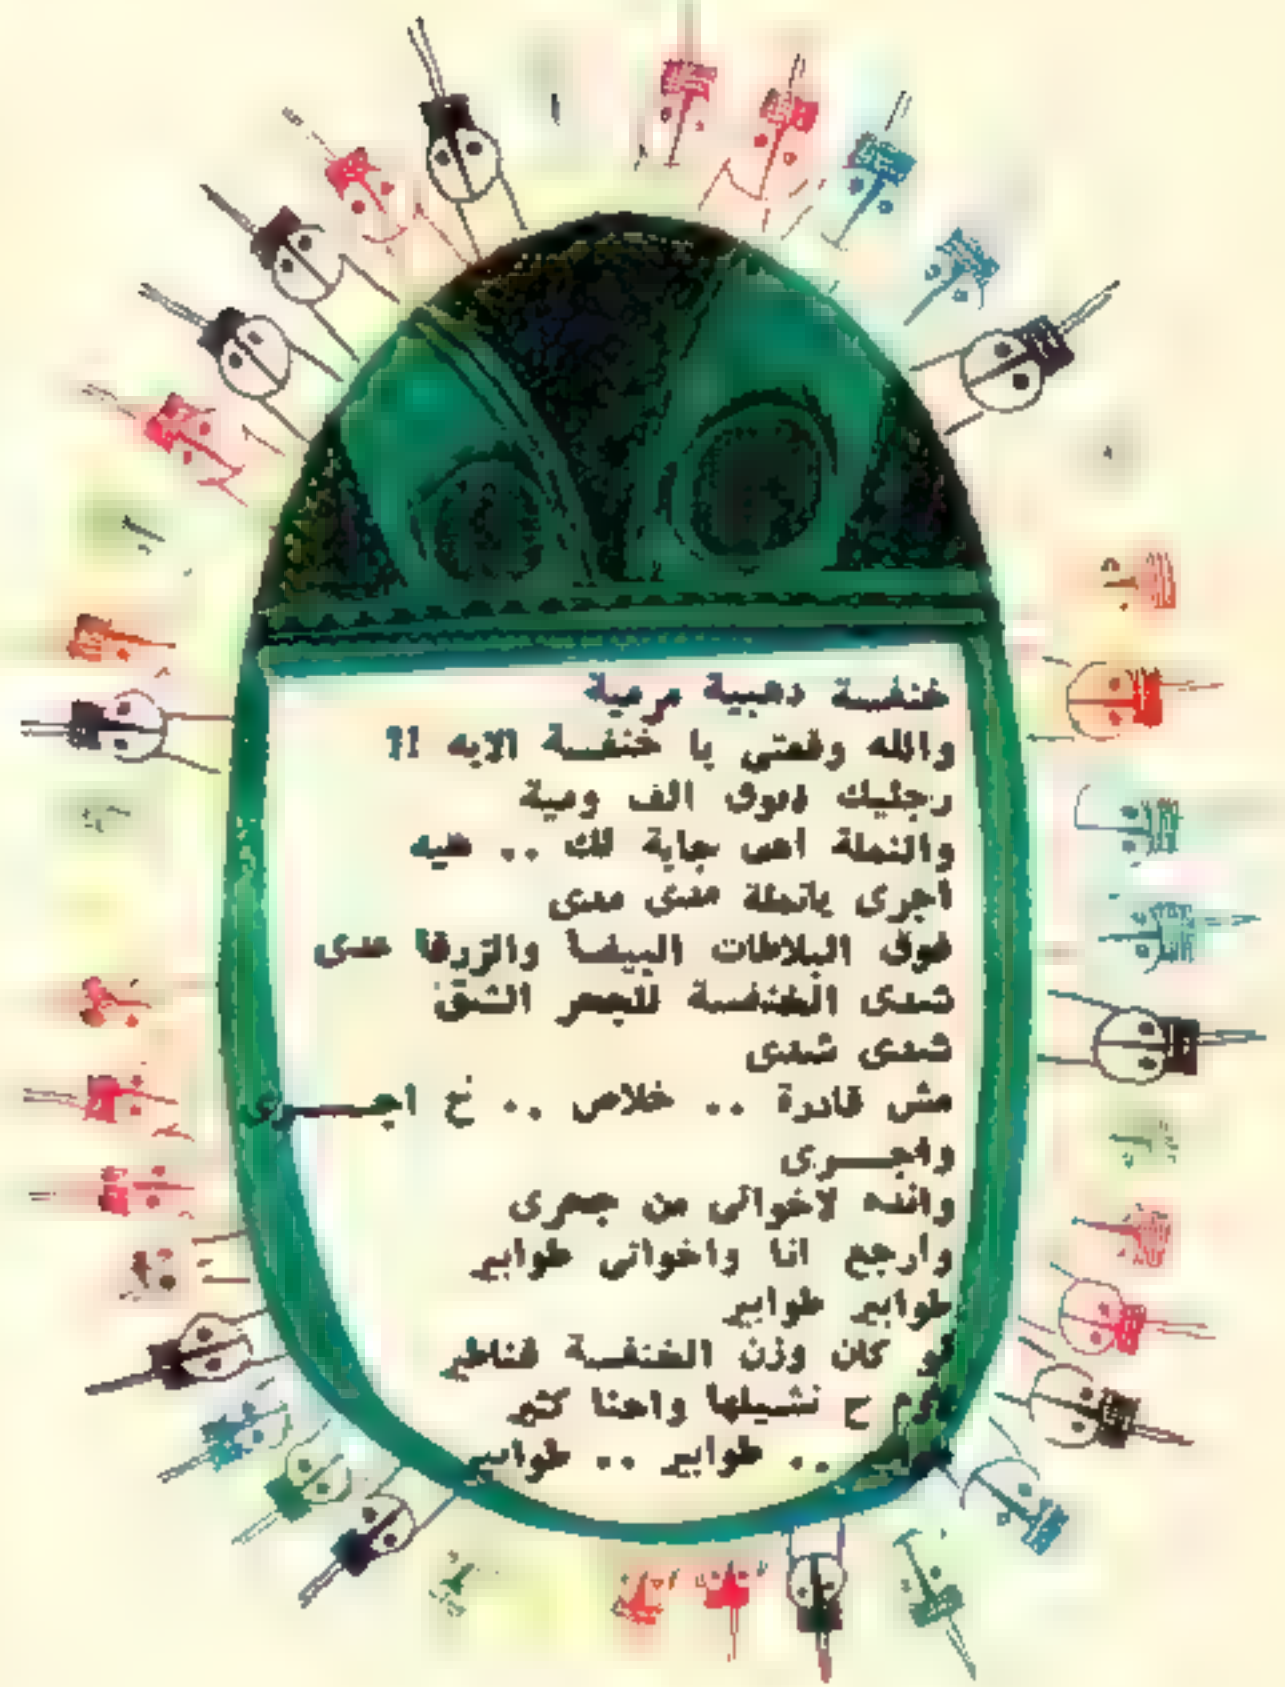 خنفسة دهبية مرمية
والله وقعتى يا خنفسة الايه !!
رجليك فوق الف ومية
والنملة اهى جاية لك .. هيه
اجرى يانملة مدى مدى
فوق البلاطات البيضا والزرقا عدى
شدى الخنفسة للجحر الشق
شدى شدى
مش قادرة .. خلاص .. خ اجــــرى
واجــــرى
وانده لاخواتى من جحرى
وارجع انا واخواتى طوابير
طوابير طوابير
لو كان وزن الخنفسة قناطير
ح نشيلها واحنا كتير
.. طوابير .. طوابير